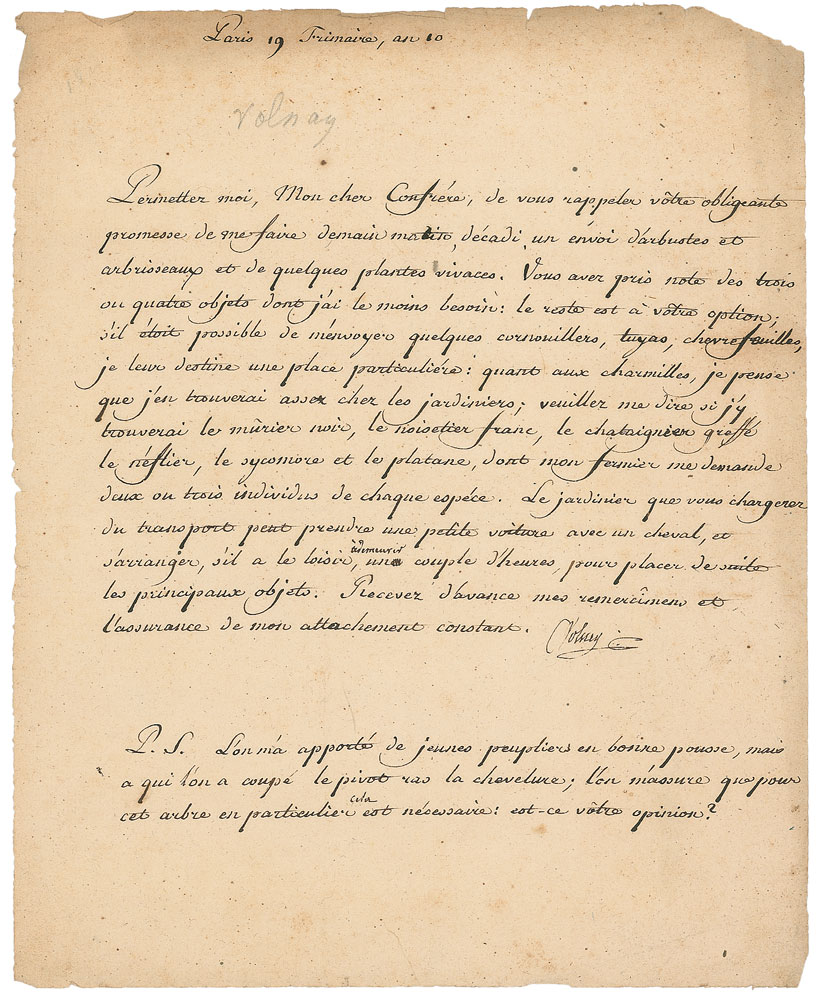 Paris 19 Frimaire, an 10
Volnay
Permettez moi, Mon cher Confrére, de vous rappeler vôtre obligeante
promesse de me faire demain matin, décadi, un envoi d'arbustes et
arbrisseaux et de quelques plantes vivaces. Vous avez pris note des trois
ou quatre objets dont j'ai le moins besoin: le reste est à vôtre option;
s'il étoit possible de m'envoyer quelques cornouillers, tuyas, chevrefeuilles,
je leur destine une place particuliére: quant aux charmilles, je pense
que j'en trouverai assez chez les jardiniers; veuillez me dire si j'y
trouverai le mûrier noir, le noisetier franc, le chataignier greffé
le néflier, le sycomore et le platane, dont mon fermier me demande
deux ou trois individus de chaque espéce. Le jardinier que vous chargerez
du transport peut prendre une petite voiture avec un cheval, et
s'arranger, s'il a le loisir, à demeurer une couple d'heures, pour placer de suite
les principaux objets. Recevez d'avance mes remercîmens et
l'assurance de mon attachement constant. Volney
P. S. L'on m'a apporté de jeunes peupliers en bonne pousse, mais
a qui l'on a coupé le pivot ras la chevelure; l'on m'assure que pour
cet arbre en particulier cela est nécessaire: est-ce vôtre opinion?